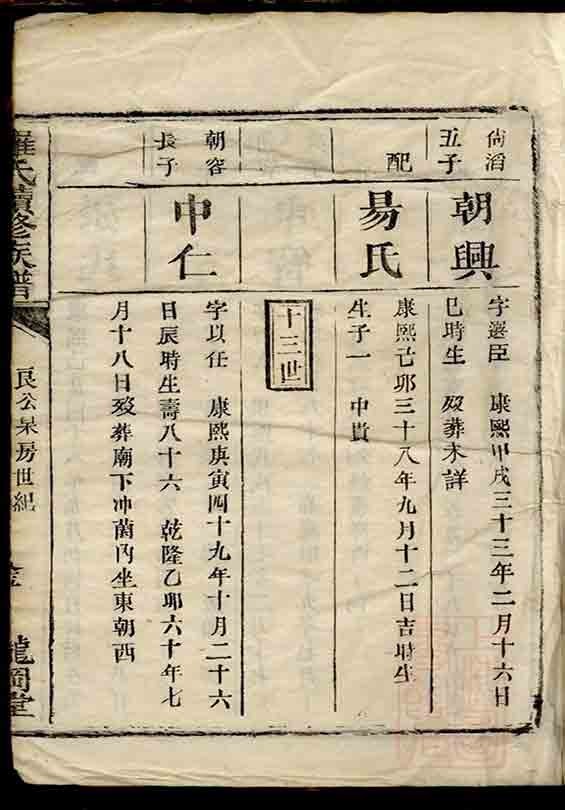 倘滔
五子
朝興
字選臣 康熙甲戌三十三年二月十六日
巳時生 歿葬未詳
配
易氏
康熙己卯三十八年九月十二日吉時生
生子一 中貴
十三世
朝容
長子
中仁
字以任 康熙庚寅四十九年十月二十六
日辰時生壽八十六 乾隆乙卯六十年七
月十八日歿葬廟下冲菌內坐東朝西
羅氏續修族譜
良公杲房世紀
龍岡堂